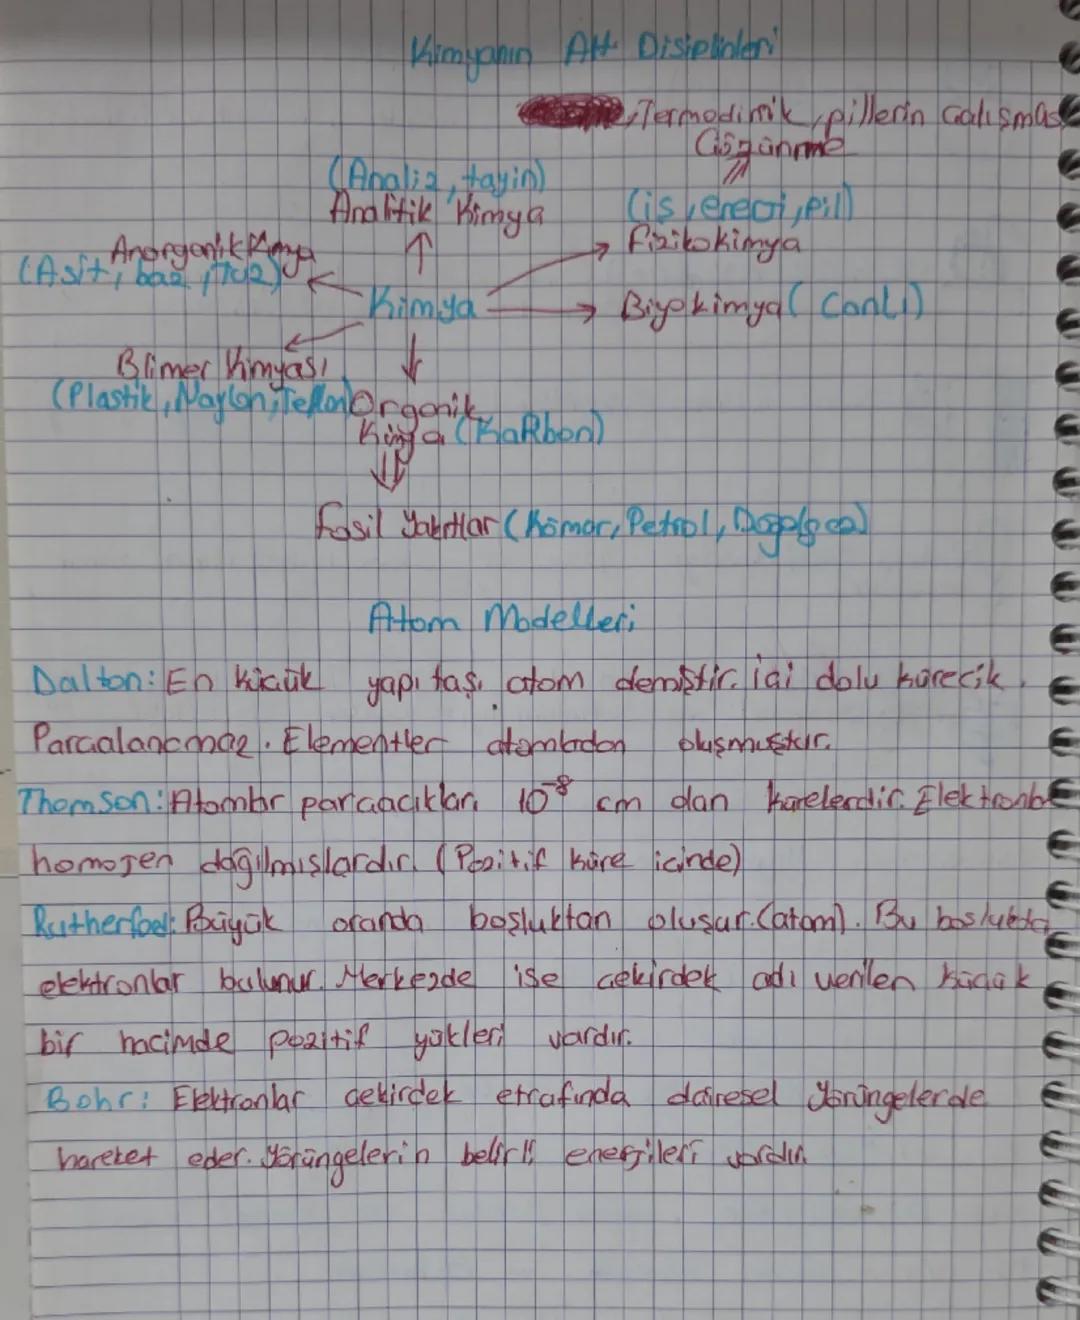 Kimyanın Alt Disiplinleri
Termodimik, pillerin çalışması
Çözünme
(Analiz, tayin)
Analitik Kimya
(is, enerji, pil)
Fizikokimya
Anorganik Kimya
(Asit, baz, tuz)
Kimya
Biyokimya (Canlı)
Blimer Kimyası
(Plastik, Naylon, Teflon)
Organik
Kimya (Karbon)
Fosil Yakıtlar (Kömür, Petrol, Doğalgaz)
Atom Modelleri
Dalton: En küçük yapı taşı atom demiştir. içi dolu kürecik.
Parçalanamaz. Elementler atomlardan oluşmuştur.
Thomson: Atomlar parçacıkları 10⁻⁸ cm olan kürelerdir. Elektronlar
homojen dağılmışlardır. (Pozitif küre içinde)
Rutherfod: Büyük oranda boşluktan oluşur. (atom). Bu boşlukta
elektronlar bulunur. Merkezde ise çekirdek adı verilen küçük
bir hacimde pozitif yükleri vardır.
Bohr: Elektronlar çekirdek etrafında dairesel yörüngelerde
hareket eder. Yörüngelerin belirli enerjileri vardır.